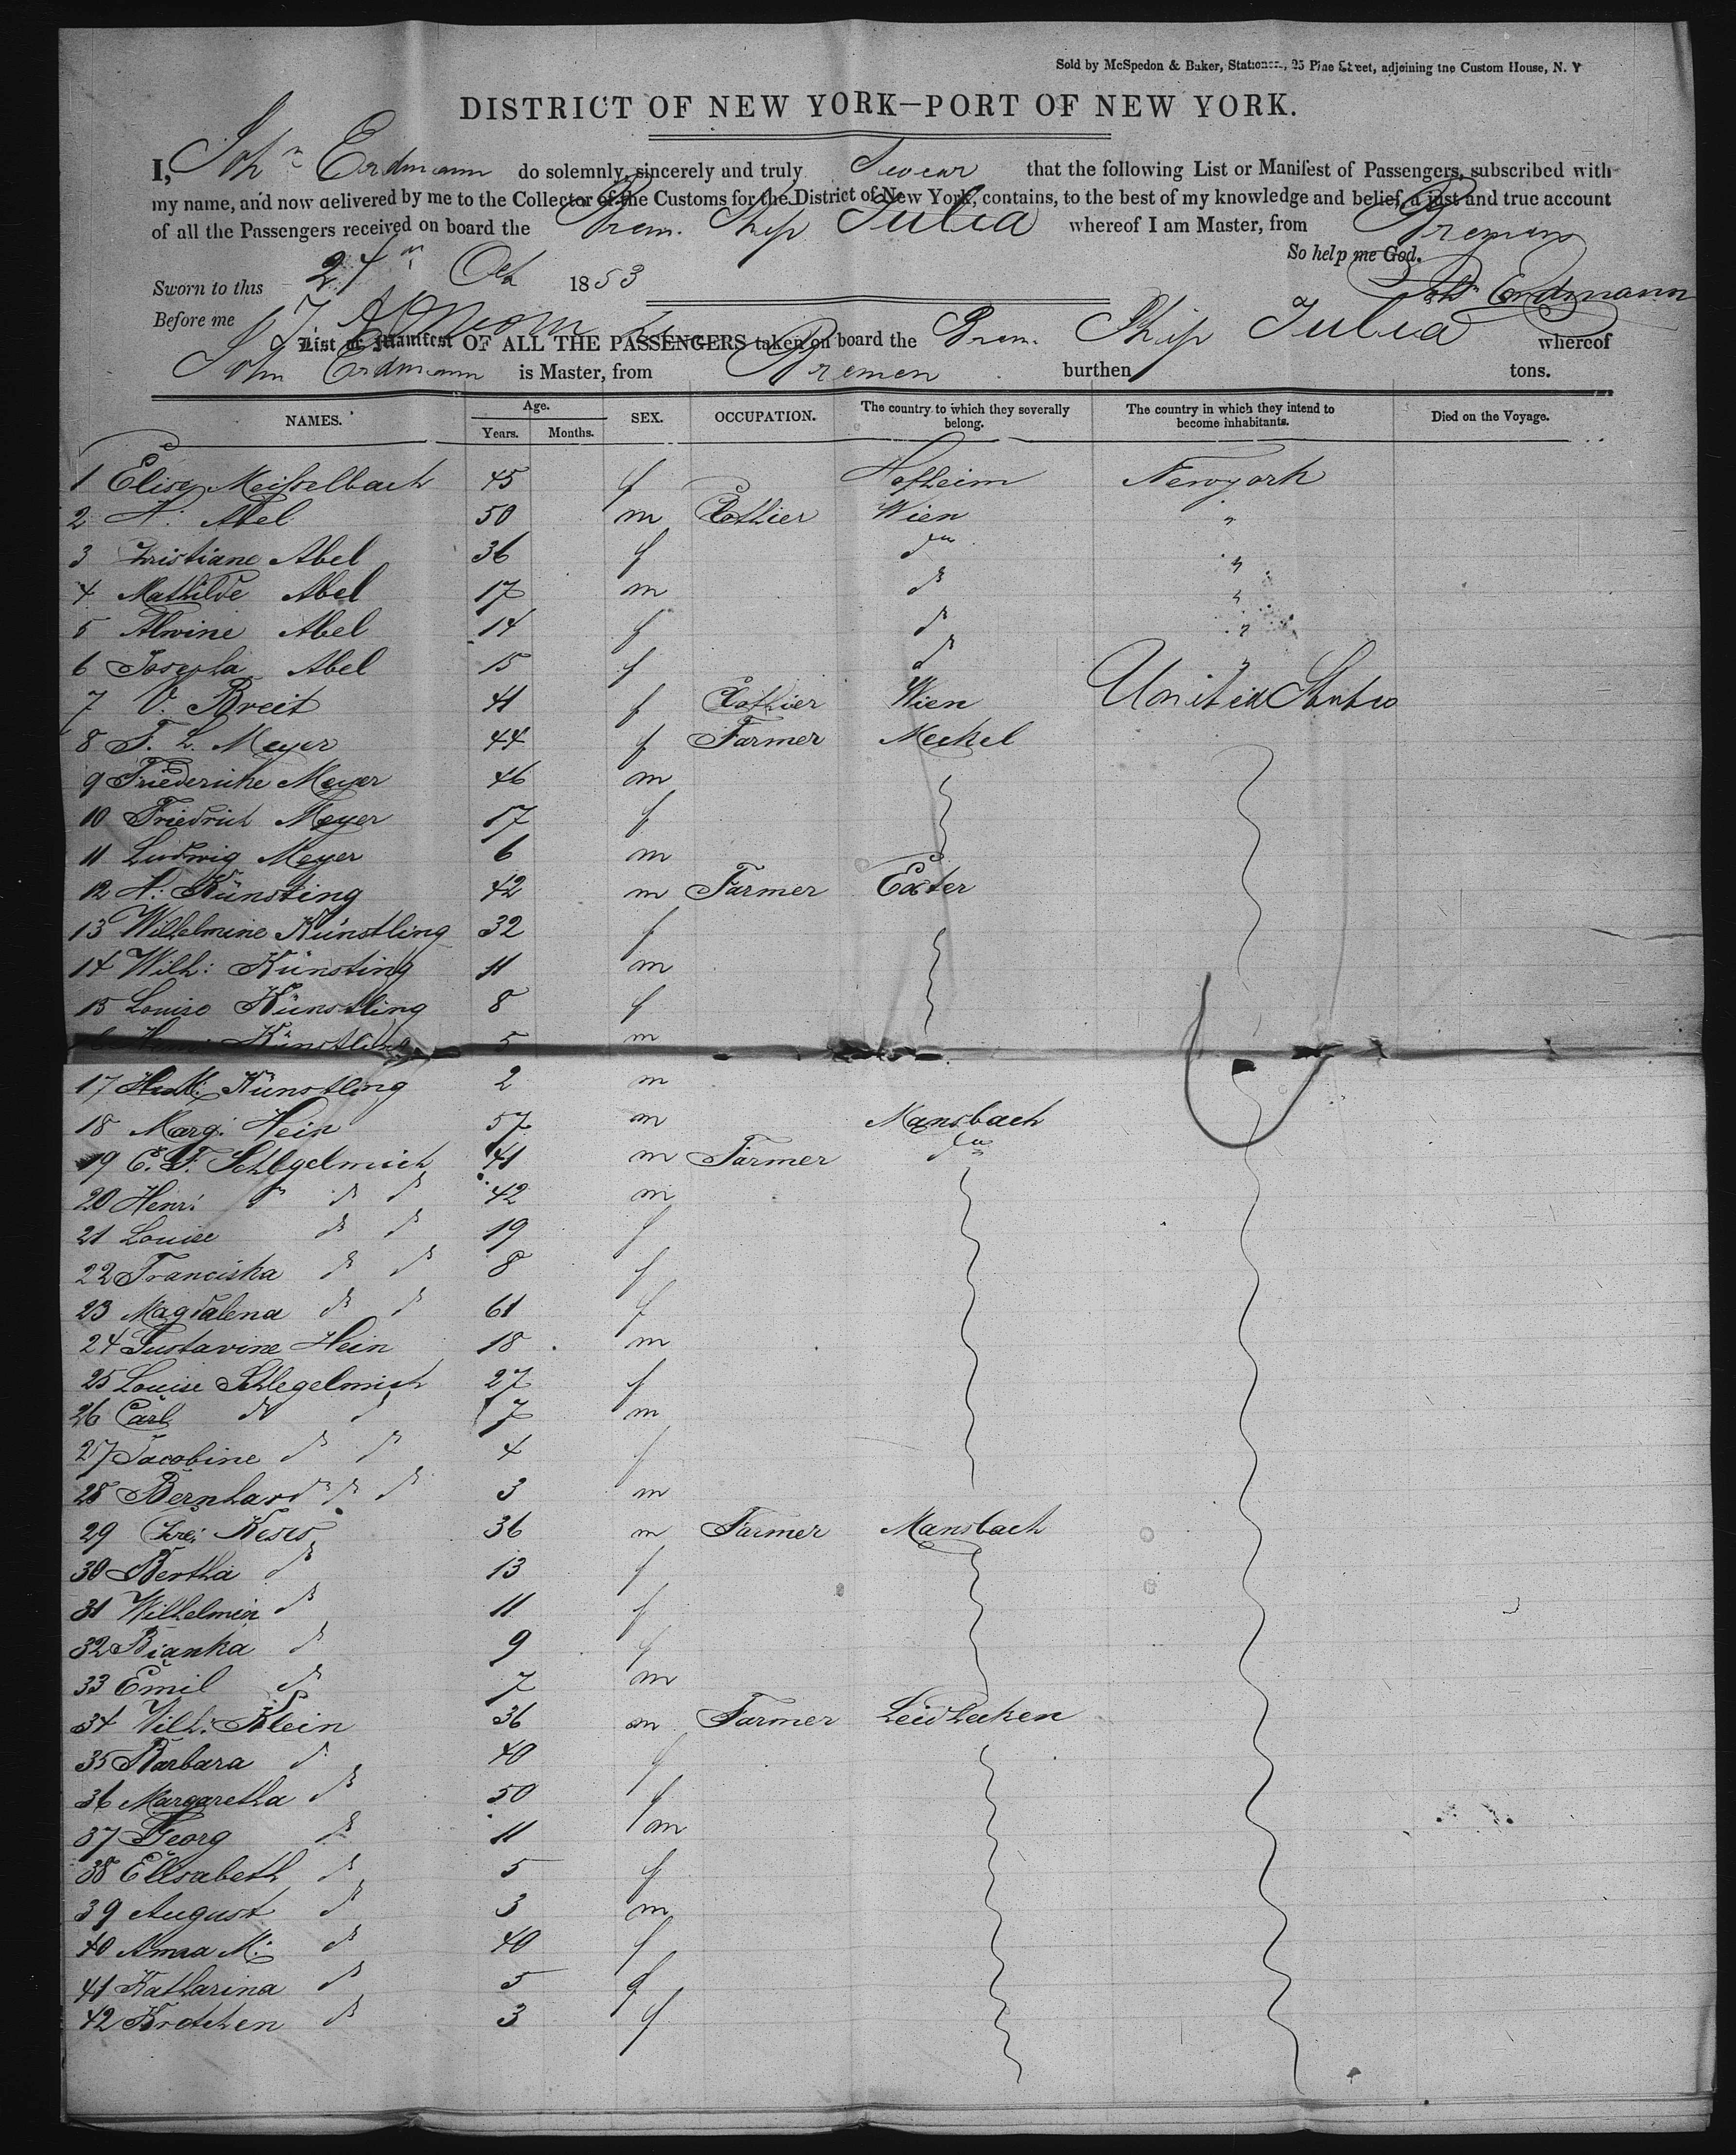 Sold by McSpedon & Baker, Stationers, 25 Pine Street, adjoining the Custom House, N. Y
DISTRICT OF NEW YORK—PORT OF NEW YORK.
I, Joh n Erdmann do solemnly, sincerely and truly Swear that the following List or Manifest of Passengers, subscribed with
my name, and now delivered by me to the Collector of the Customs for the District of New York, contains, to the best of my knowledge and belief, a just and true account
of all the Passengers received on board the Brem. Ship Julia whereof I am Master, from Bremen
So help me God.
Sworn to this 27 th Oct 1853 Joh n Erdmann
Before me
List or Manifest OF ALL THE PASSENGERS taken on board the Brem. Ship Julia whereof
John Erdmann is Master, from Bremen burthen tons.
NAMES. Age. Years. Months. SEX. OCCUPATION. The country to which they severally belong. The country in which they intend to become inhabitants. Died on the Voyage.
1 Elise Meisselbach 45 f Hofheim Newyork
2 A. Abel 50 m Clothier Wien "
3 Christiane Abel 36 f do "
4 Mathilde Abel 17 m do "
5 Alwine Abel 14 f do "
6 Josepha Abel 15 f do "
7 V. Breit 41 f Clothier Wien United States
8 F. L. Meyer 44 f Farmer Meckel
9 Friedericke Meyer 46 m
10 Friedrich Meyer 17 f
11 Ludwig Meyer 6 m
12 H: Künsting 42 m Farmer Exter
13 Wilhelmine Künstling 32 f
14 Wilh: Künsting 11 m
15 Louise Künstling 8 f
Künstling 5 m
17 Künstling 2 m
18 Marg: Hein 57 m Mansbach
19 E. F. Schlegelmich 41 m Farmer do
20 Henr: do do do 42 m
21 Louise do do 19 f
22 Franciska do do 8 f
23 Magdalena do do 61 f
24 Gustavine Hein 18 m
25 Louise Schlegelmich 27 f
26 Carl do do 7 m
27 Jacobine do do 4 f
28 Bernhard do do do 3 m
29 Chr: 36 m Farmer Mansbach
30 Bertha do 13 f
31 Wilhelmin do 11 f
32 Bianka do 9 f
33 Emil do 7 m
34 Vilh: Klein 36 m Farmer
35 Barbara do 40 f
36 Margaretha do 50 f
37 Georg do 11 m
38 Ellsabeth do 5 f
39 August do 3 m
40 Anna M: do 40 f
41 Katharina do 5 f
42 Kretchen do 3 f